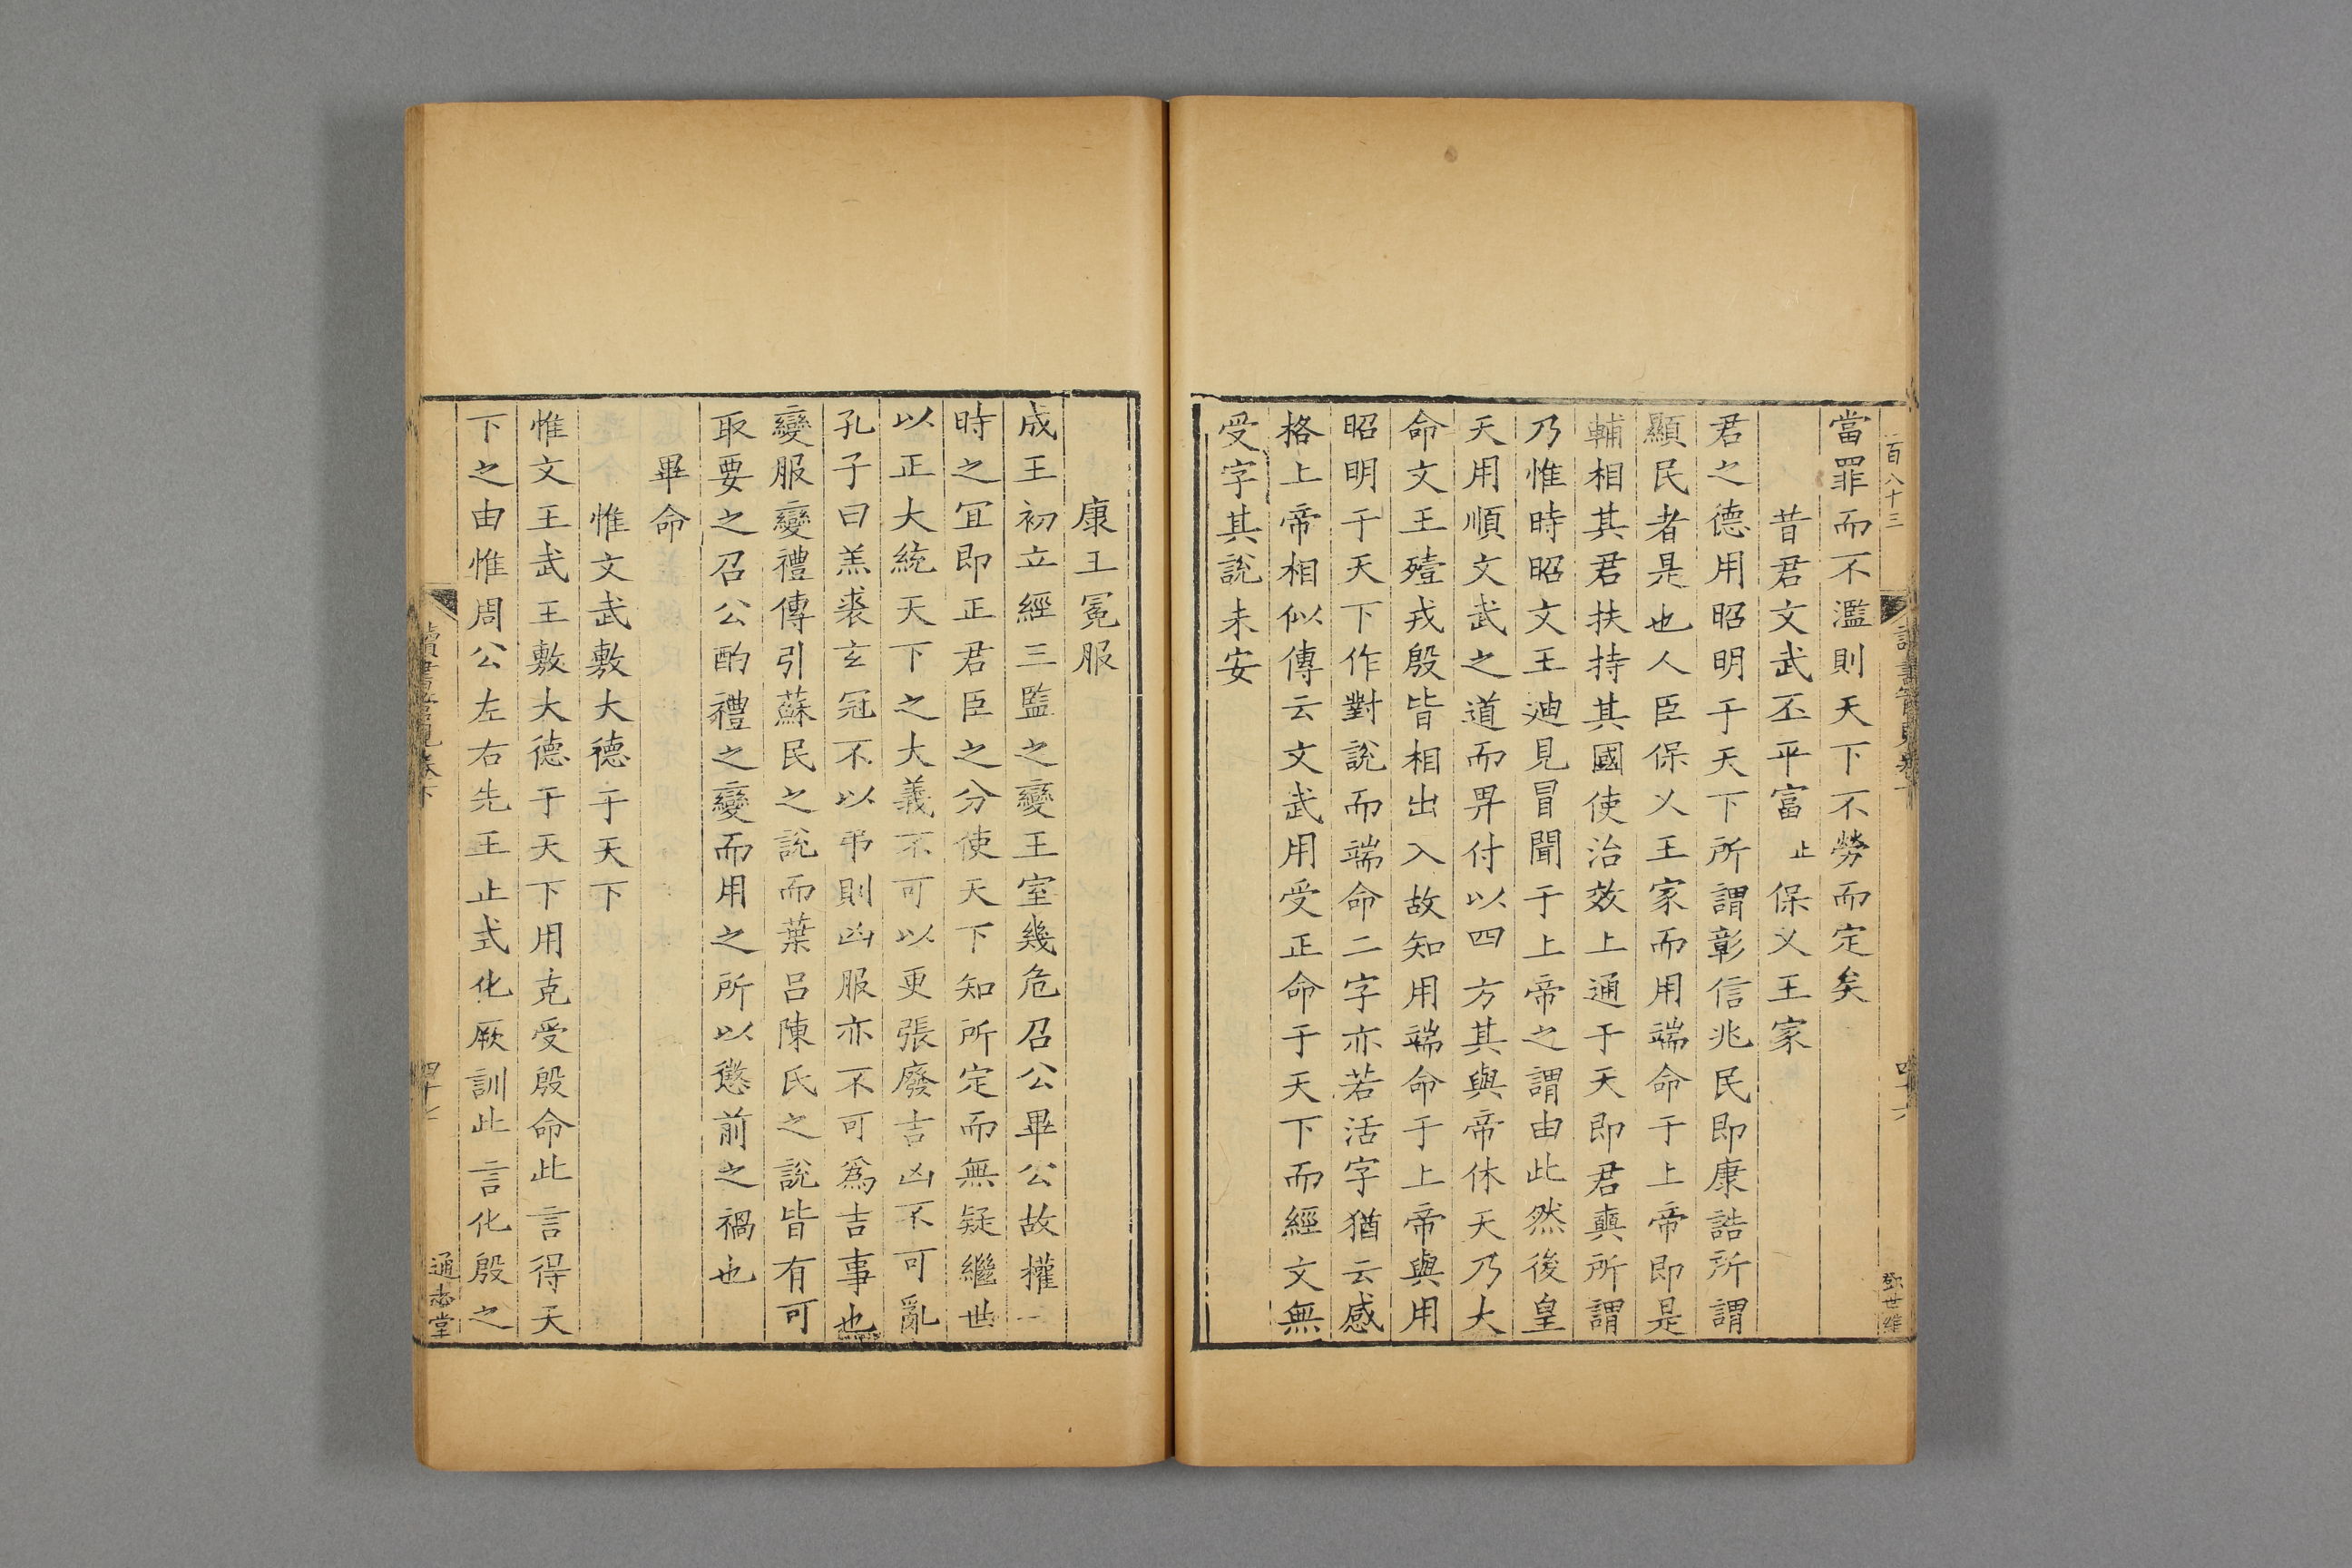 百八十三
當罪而不濫則天下不勞而定矣
昔君文武丕平富止保乂王家
君之德用昭明于天下所謂彰信兆民即康誥所謂
顯民者是也人臣保乂王家而用端命于上帝即是
輔相其君扶持其國使治效上通于天即君奭所謂
乃惟時昭文王迪見冒聞于上帝之謂由此然後皇
天用順文武之道而畀付以四方其與帝休天乃大
命文王殪戎殷皆相出入故知用端命于上帝與用
昭明于天下作對說而端命二字亦若活字猶云感
格上帝相似傳云文武用受正命于天下而經文無
受字其說未安
康王冕服
成王初立經三監之變王室幾危召公畢公故權一
時之宜即正君臣之分使天下知所定而無疑繼世
以正大統天下之大義不可以更張廢吉凶不可亂
孔子曰羔裘玄冠不以弔則凶服亦不可爲吉事也
變服變禮傳引蘇民之說而葉呂陳氏之說皆有可
取要之召公酌禮之變而用之所以懲前之禍也
畢命
惟文武敷大德于天下
惟文王武王敷大德于天下用克受殷命此言得天
下之由惟周公左右先王止式化厥訓此言化殷之
通志堂